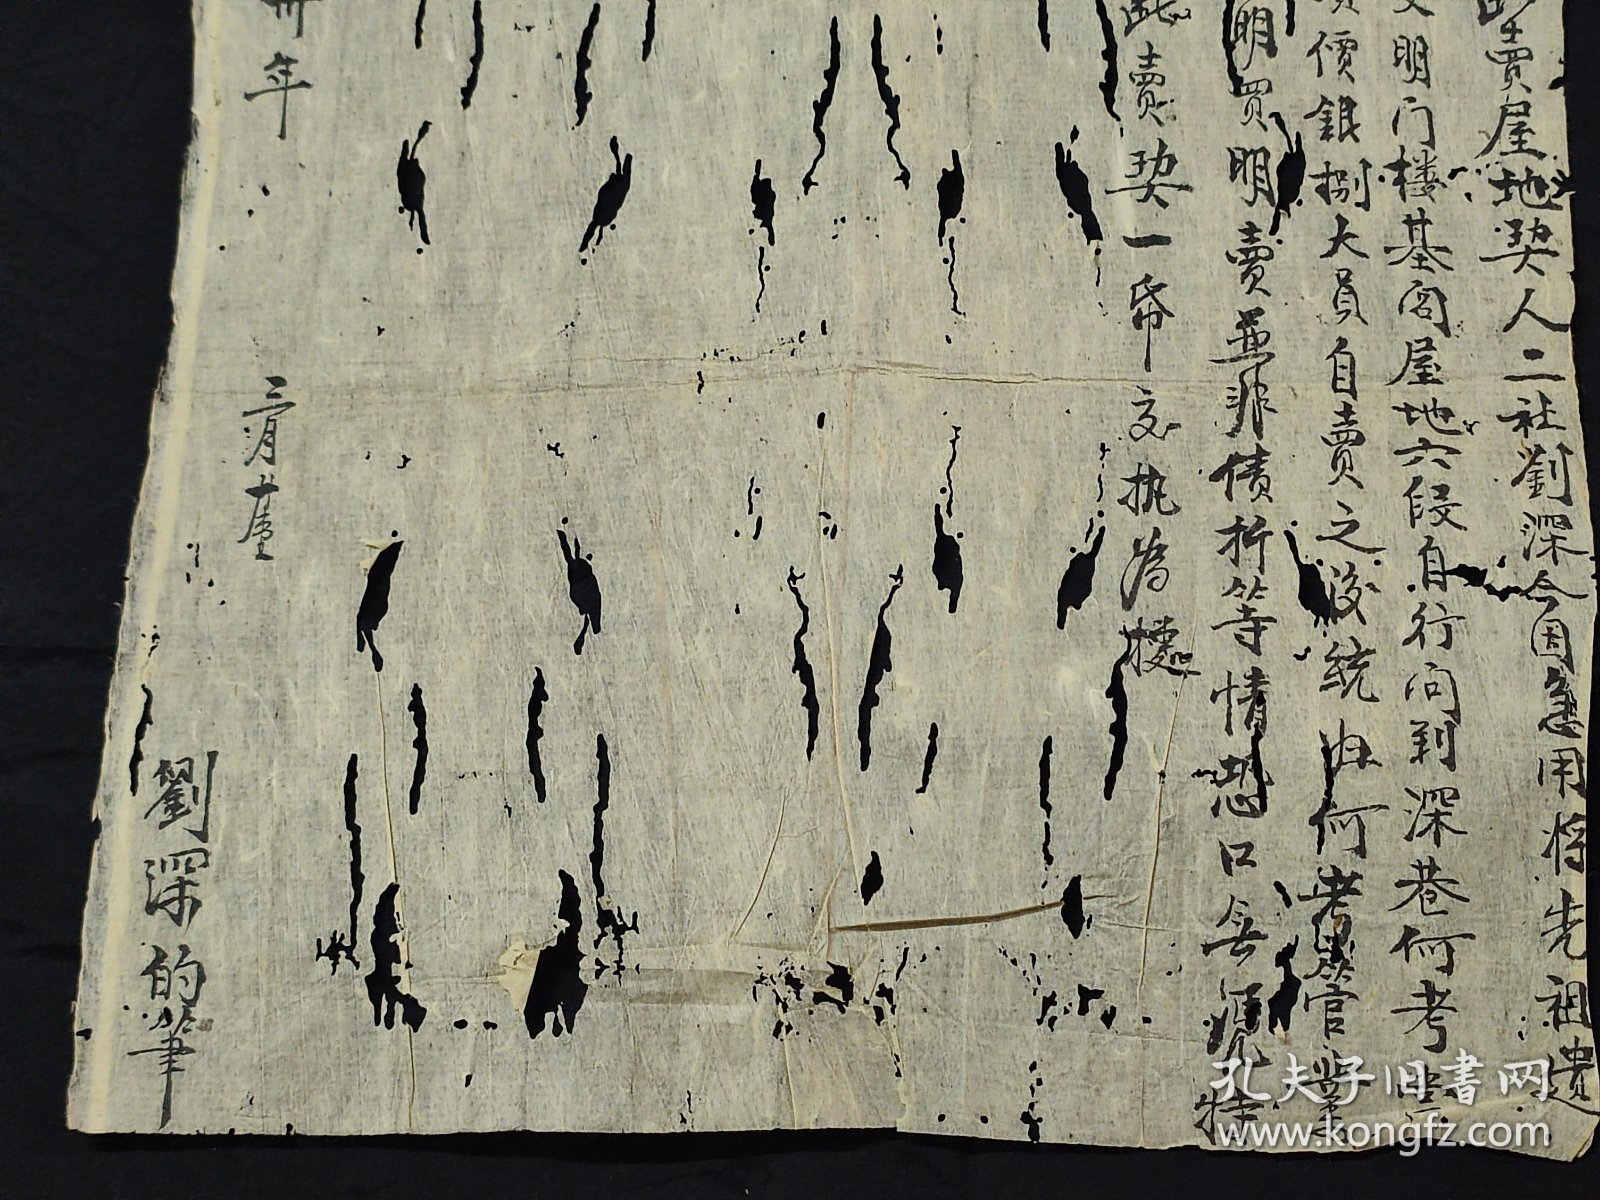 賣屋地契人二社劉深今因急用將先祖遺
明门楼基阁屋地六段自行问到深巷何考
價銀捌大員自賣之後統由何考官業
明買明賣並非債折等情恐口無憑特
賣契一帋交执為據
年 三月 廿 劉深的筆
孔夫子旧书网
www.kongfz.com